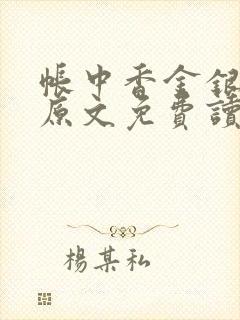 帳中香金銀
原文免費讀
楊某私